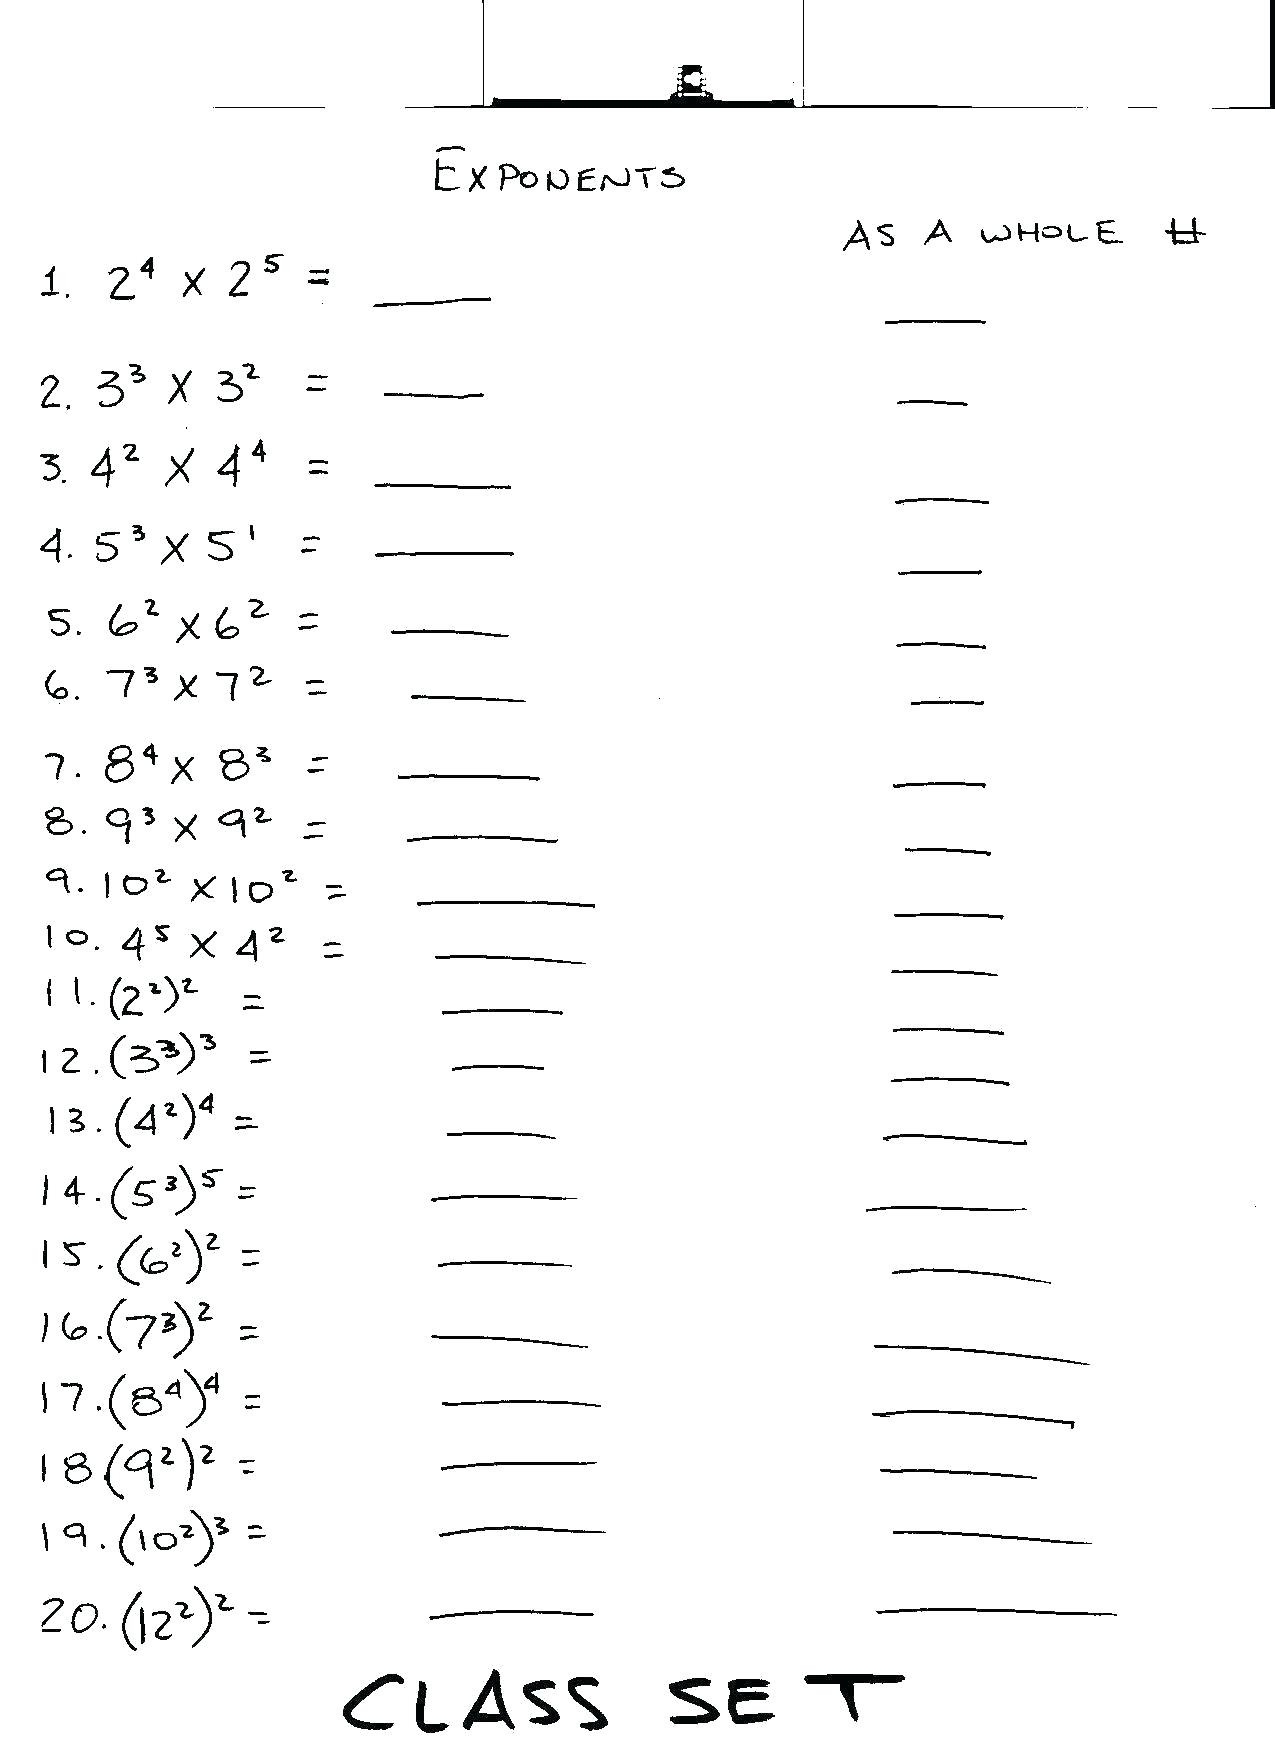 EXPONENTS
AS A WHOLE #
1. 2⁴ x 2⁵ =
2. 3³ x 3² =
3. 4² x 4⁴ =
4. 5³ x 5¹ =
5. 6² x 6² =
6. 7³ x 7² =
7. 8⁴ x 8³ =
8. 9³ x 9² =
9. 10² x 10² =
10. 4⁵ x 4² =
11. (2²)² =
12. (3³)³ =
13. (4²)⁴ =
14. (5³)⁵ =
15. (6²)² =
16. (7³)² =
17. (8⁴)⁴ =
18 (9²)² =
19. (10²)³ =
20. (12²)² =
CLASS SET